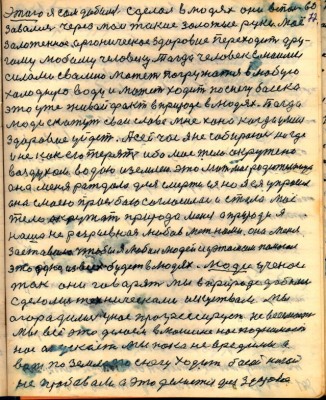 Этого я сам добился сделал в людях они встали во
Завалил через мои такие золотые руки. Моё
заложенное органическое здоровие переходит дру-
гому любому человеку. Тогда человек с моими
силами своими может погружатся в любую
холодную воду и может ходить по снегу босиком
это уже живой факт в природе в людях. Тогда
люди скажут свои слова мне
здоровие уйдёт. Я сейчас я не собираюсь нигде
и не как его терять ибо мое тело окружено
воздухом водою и землею это моя родительница
она меня родила для смерти а но я её упросил
она своего просьбою согласилась и стала моё
тело окружать природа меня а природу я
наша не разрывная любов между нами она меня
заставила чтобы я любил людей и делал им помогал
это одно из всех будет в людях. Люди ученые
так они говорят мы в природе добыли
сделали техническими искуством мы
огородились у нас прогрессирует
мы всё это делаем в машине нас поднимают
нас опускает мы пока не вредимы а
вот по земле по снегу ходить босой ногой
не пробавали а это делается для здоровия